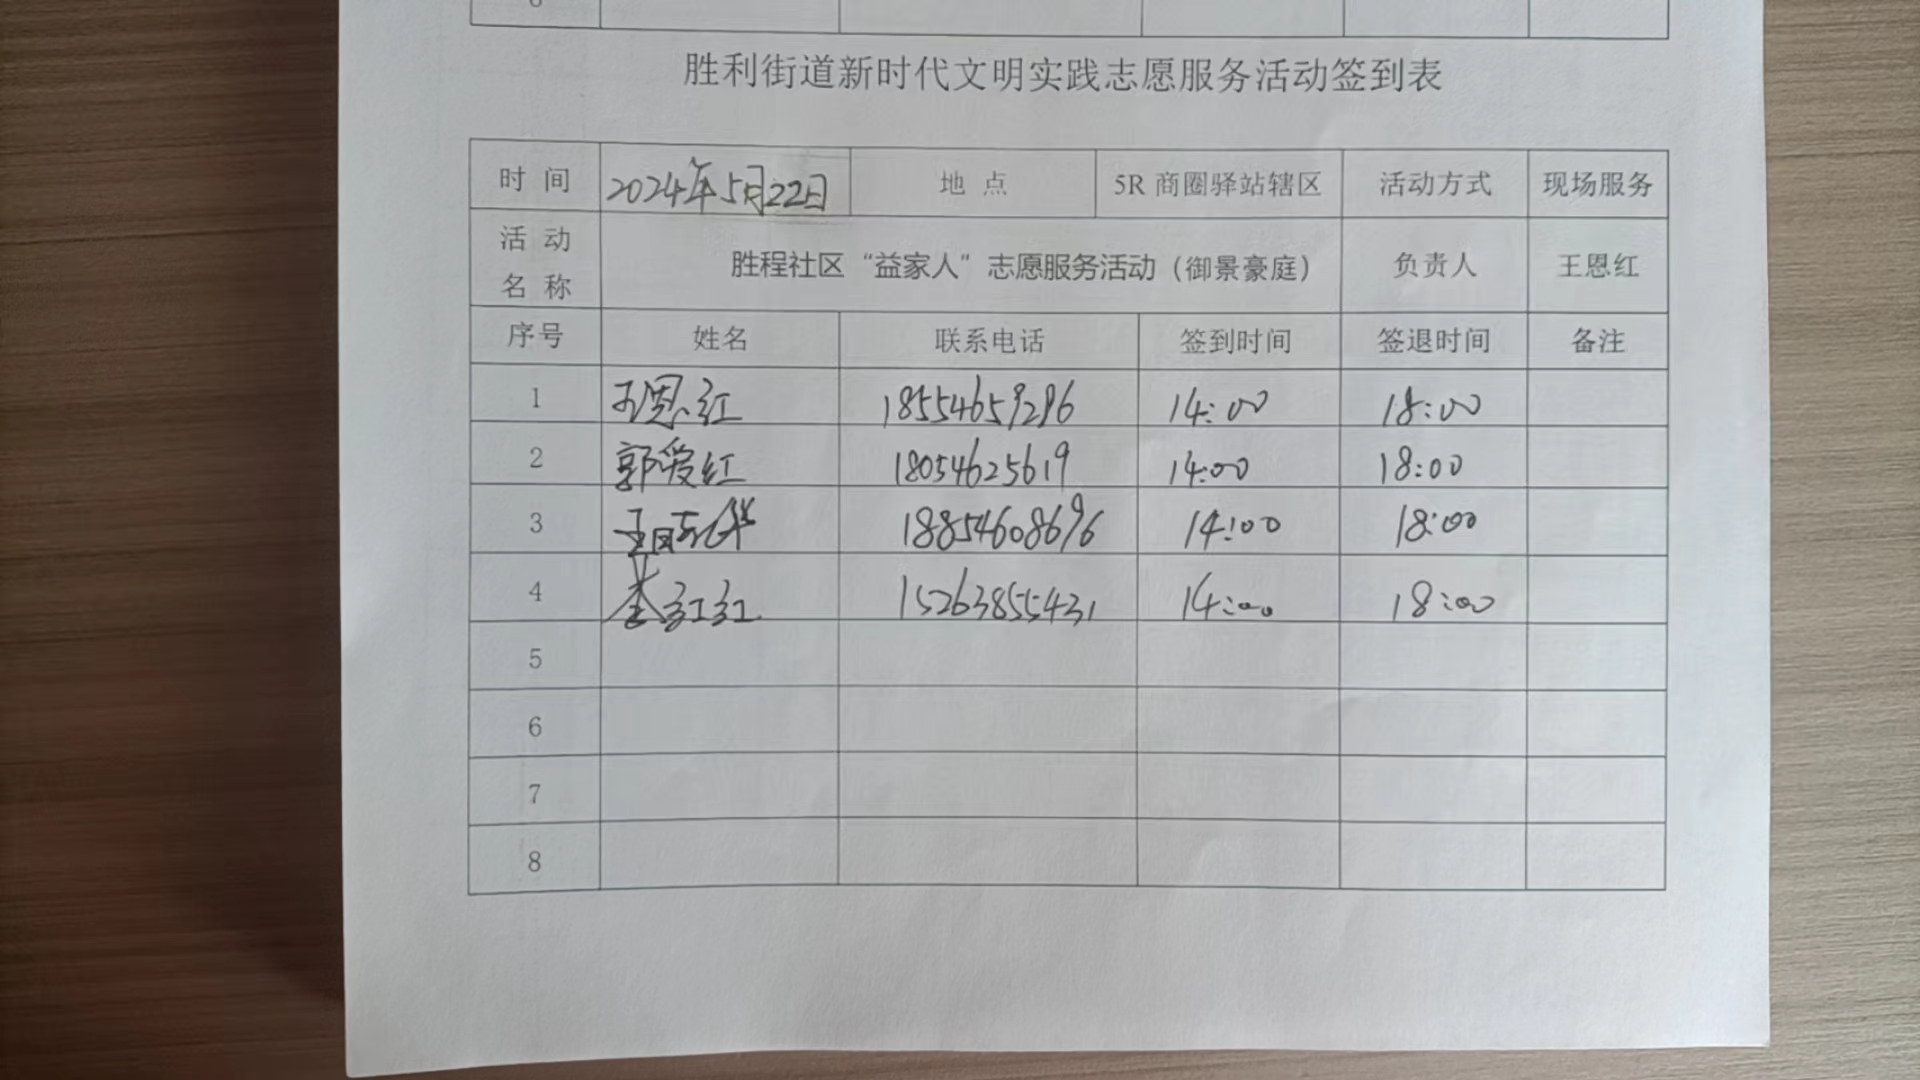 胜利街道新时代文明实践志愿服务活动签到表
时 间 2024年5月22日 地 点 5R 商圈驿站辖区 活动方式 现场服务
活 动 名 称 胜程社区“益家人”志愿服务活动（御景豪庭） 负责人 王恩红
序号 姓名 联系电话 签到时间 签退时间 备注
1 王恩红 18554659296 14:00 18:00
2 郭爱红 18054625619 14:00 18:00
3 18854608696 14:00 18:00
4 李红红 15263855431 14:00 18:00
5
6
7
8